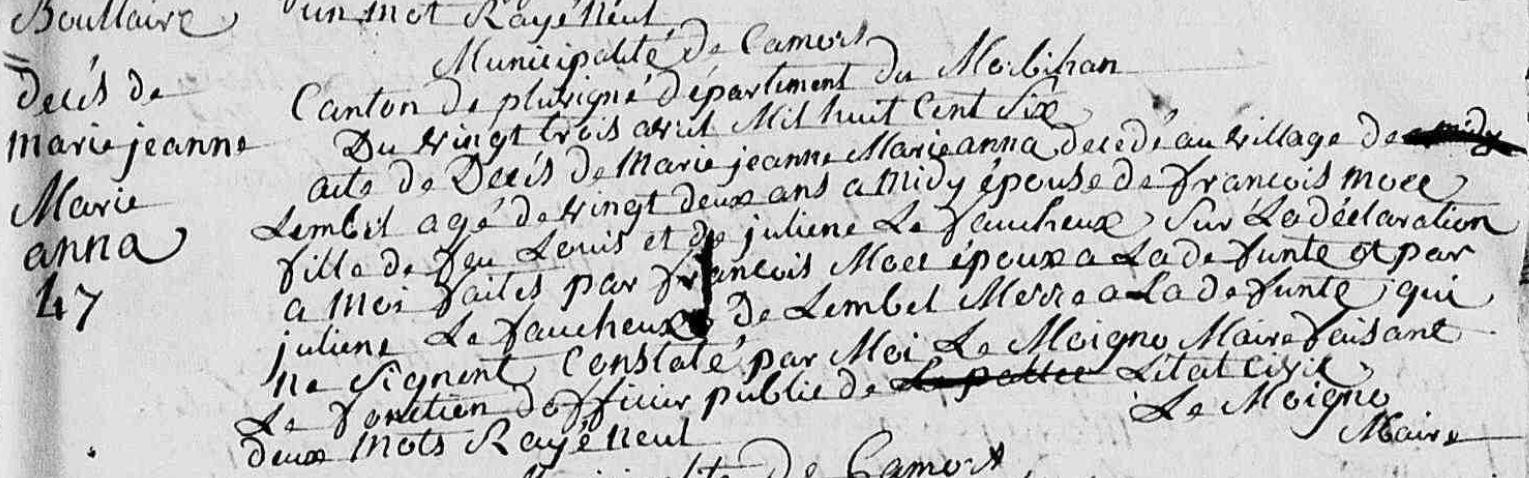 Boullaire
un mot Rayé Neul
Municipalité de Camors
decés de
marie jeanne
Marie
anna
47
Canton de pluvigné département du Morbihan
Du vingt trois avril Mil huit Cent Six
acte de Decés de Marie jeanne Marie anna decedé au village de midy
Lembel agé de vingt deux ans a Midy épouse de francois moce
fille de feu Louis et de juliene Le faucheux Sur La déclaration
a Moi faites par francois Moce époux a La defunte et par
juliene Le faucheux de Lembel Merre a La defunte qui
ne Signent Constaté par Moi Le Moigno Maire faisant
Le fonction dofficier public de Litat Civil
Le Moigno
Maire
deux Mots Rayé Neul
de Camors